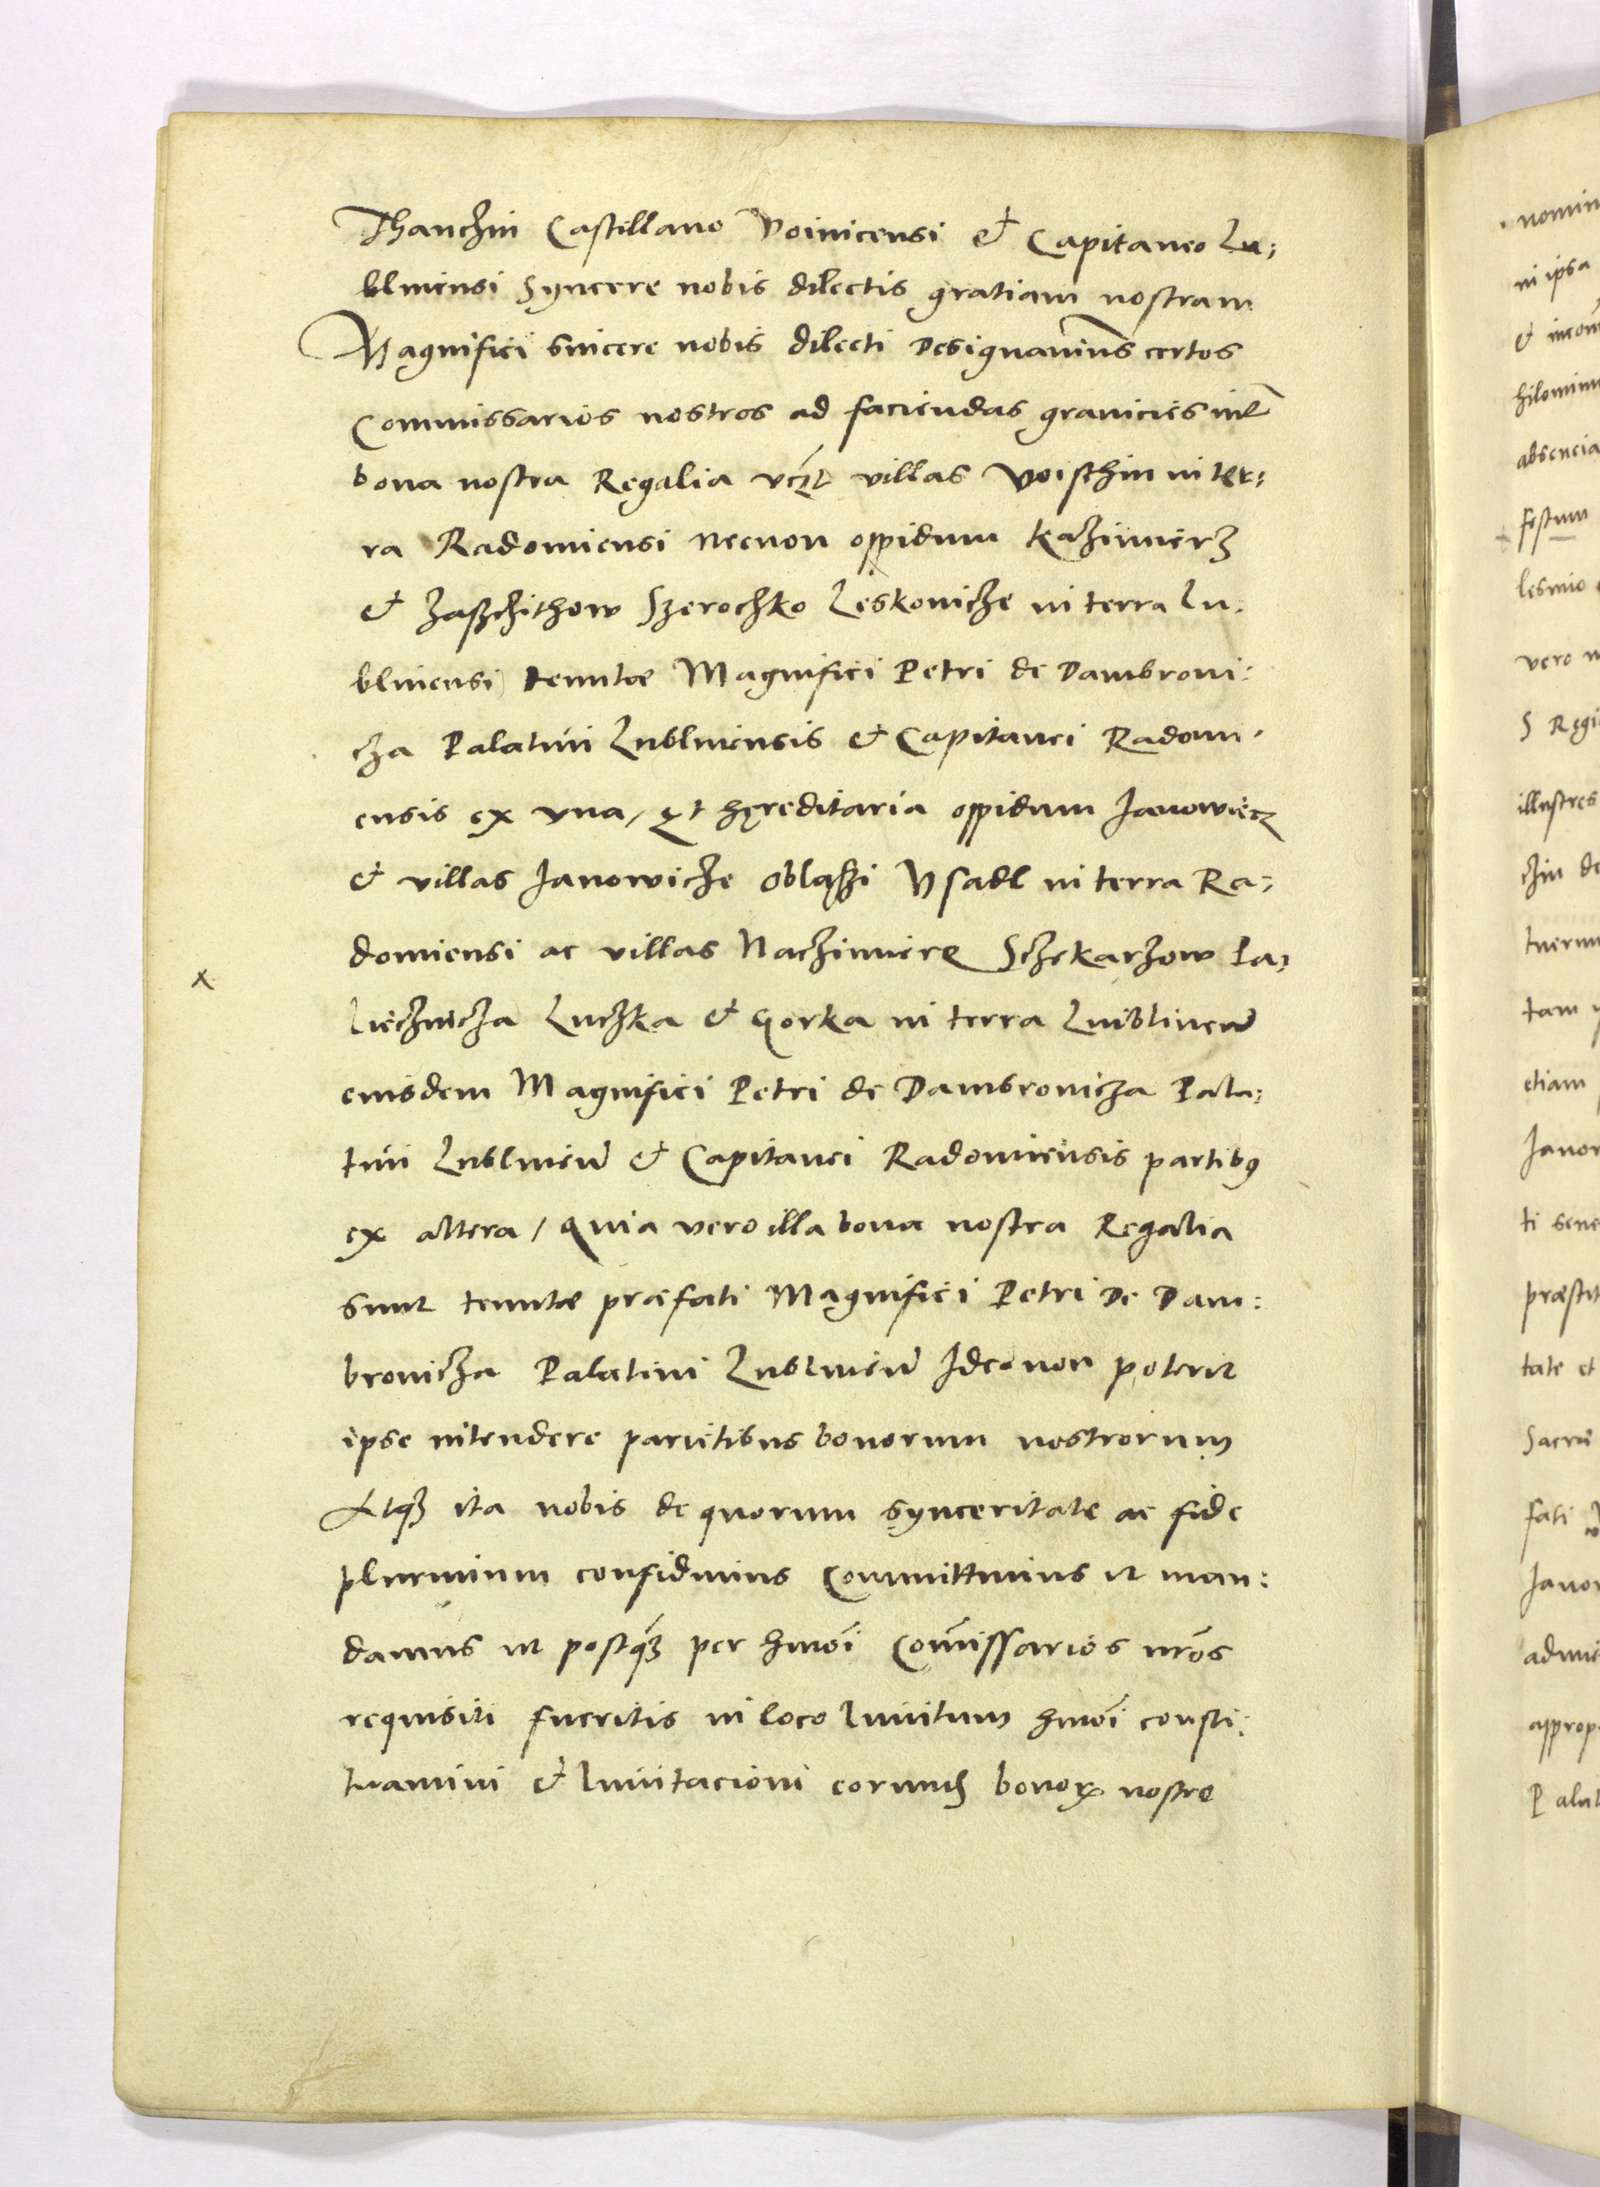 Thanczin Castillano Voinicensi & Capitaneo Lu:
blinensi Syncere nobis dilectis gratiam nostram
Magnifici sincere nobis dilecti Designavimus certos
Commissarios nostros ad faciendas granicies int̃
bona nostra Regalia vcz̃t villas Voischin in ter:
ra Radomiensi necnon oppidum Kazimierz
& Zaszchithow Szeroczko Leskovicze in terra Lu:
blinensi tenutæ Magnifici Petri de Dambrovi:
cza Palatini Lublinensis & Capitanei Radomi:
ensis ex vna / Et hęreditaria oppidum Janowiecz
& villas Janowicze Obląssi Vsadl in terra Ra:
domiensi ac villas Naczimiere Sczekarzow Pa:
liecznicza Luczka & Gorka in terra Lublineñ
eiusdem Magnifici Petri de Dambrovicza Pala:
tini Lublineñ & Capitanei Radomiensis partibꝰ
ex altera / Quia vero illa bona nostra Regalia
sunt tenutæ præfati Magnifici Petri De Dam:
brovicza Palatini Lublineñ Ideo non poterit
ipse intendere parietibus bonorum nostrorum
Atqꝫ ita nobis de quorum synceritate ac fide
plurimum confidimus Committimus ut man:
damus ut postq̃ꝫ per hmõi Com̃issarios nr̃os
requisiti fueritis in loco limitum hmõi consti:
tuamini & limitacioni eorumd bonoꝝ nostre
x
nomin
in ipsa
absencia
festum
vero
S Regi
illustres
tam
etiam
præstit
tate et
fati
approp
Palat